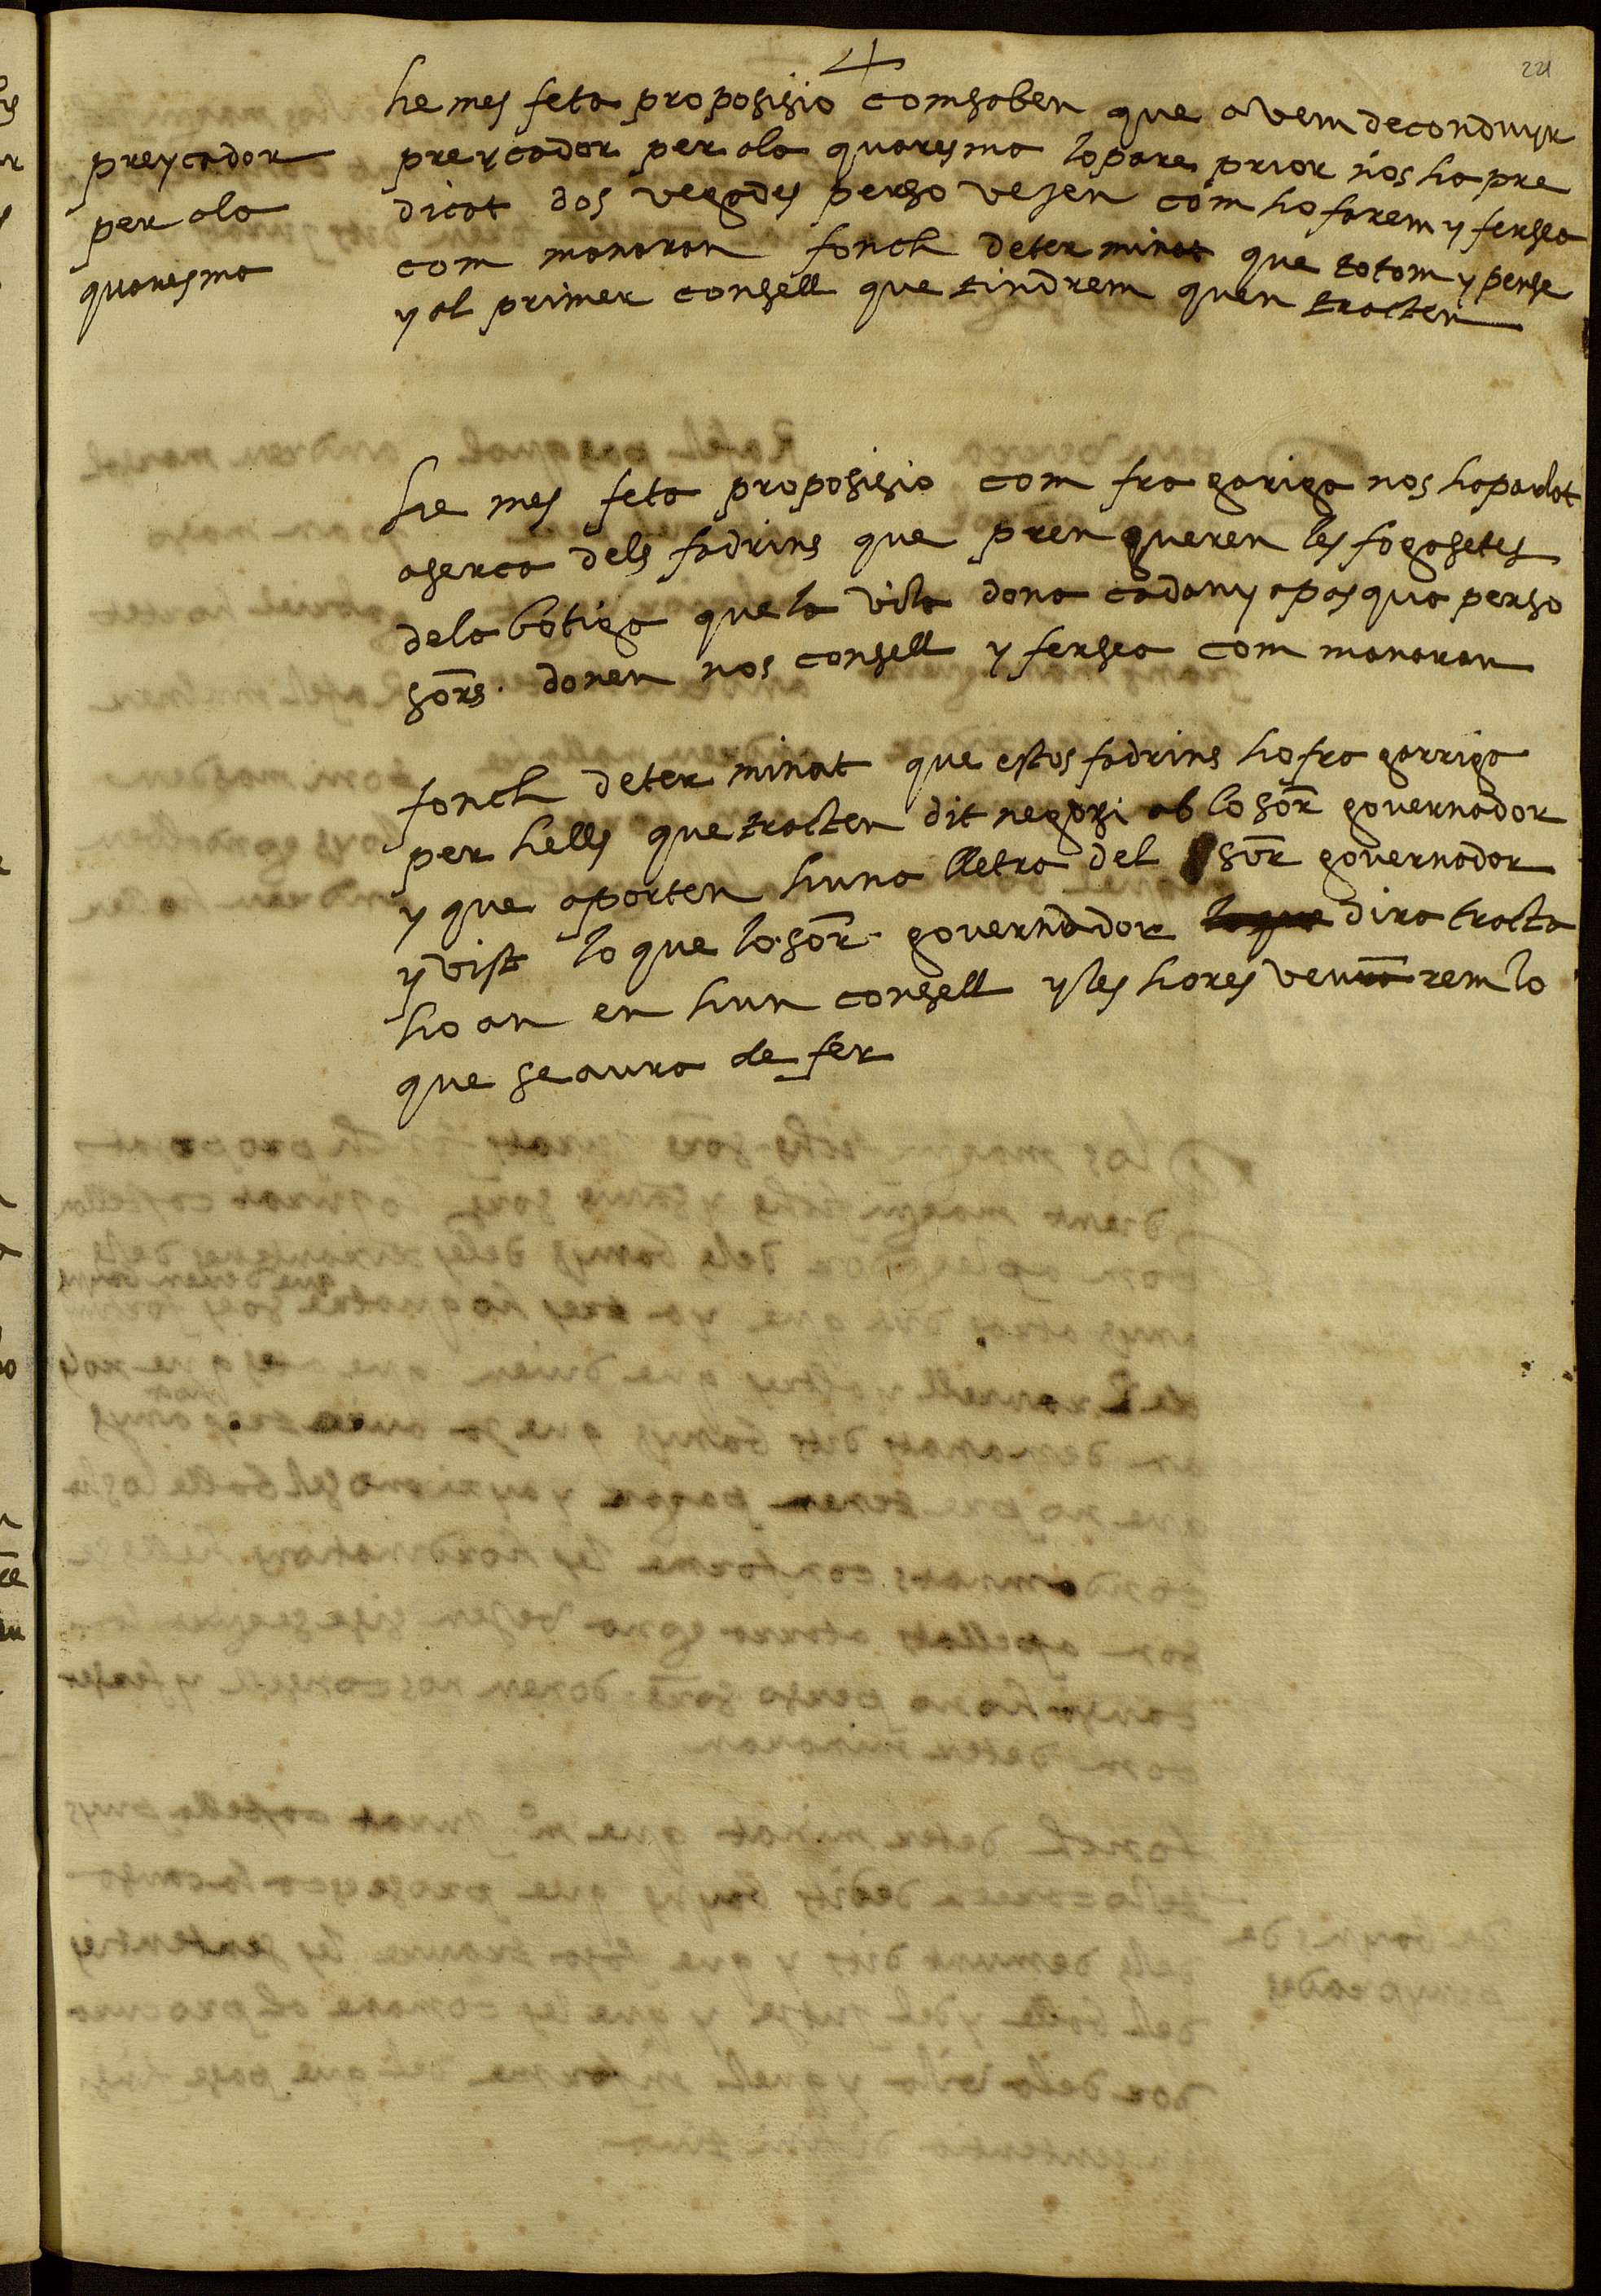 221
he mes feta proposisio com saben que avem de conduyr
preycador per a la quaresma lo pare prior nos ha pre
dicat dos vegades per so vejen com ho farem y fersea
com manaran fonch determinat que totom y pense
y al primer consell que tindrem quen tracten
preycador
per a la
quaresma
he mes feta proposisio com fra gariga nos ha parlat
aserca dels fadrins que prengueren les fogasetes
de la botiga que la vila dona cadany a pasqua per so
sors. donen nos consell y fersea com manaran
fonch determinat que estos fadrins ho fra garriga
per hells que tracten dit negosi ab lo sor governador
y que aporten huna lletra del sor governador
y vist lo que lo sor. governador lo que dira tracta
ho an en hun consell y les hores veurem lo
que se aura de fer